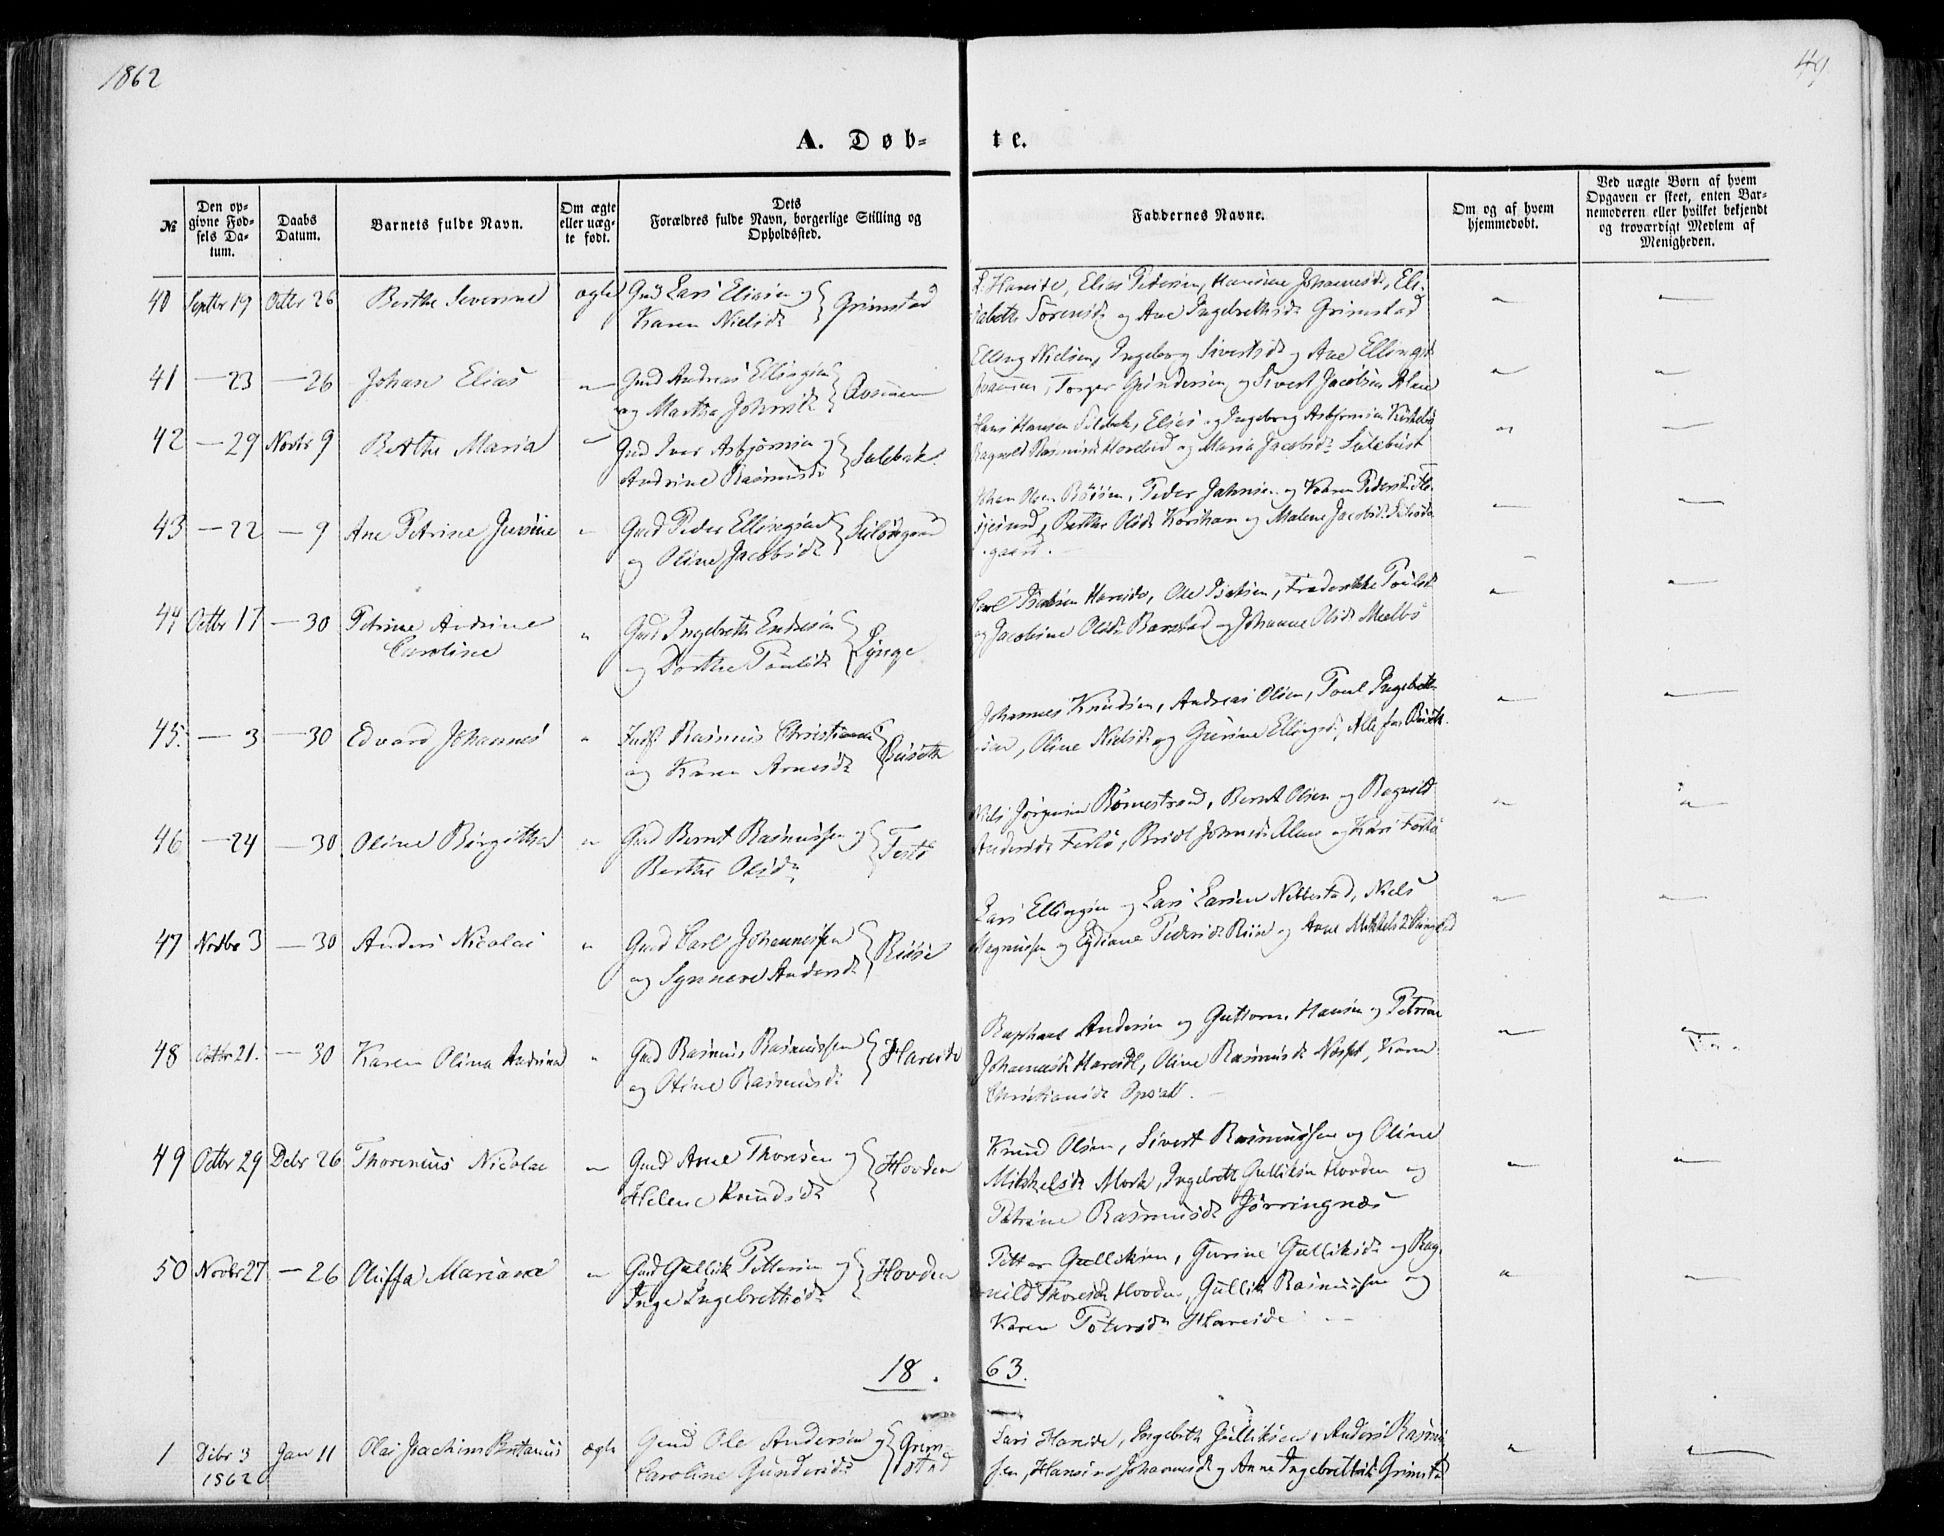 1862
49
A. Døb-
te.
№
Den op-
givne Fød-
sels Da-
tum.
Daabs
Datum.
Barnets fulde Navn.
Om ægte
eller uæg-
te født.
Dets
Forældres fulde Navn, borgerlige Stilling og
Opholdssted.
Faddernes Navne.
Om og af hvem
hjemmedøbt.
Ved uægte Børn af hvem
Opgaven er skeet, enten Bar-
nemoderen eller hvilket bekjendt
og troværdigt Medlem af
Menigheden.
40 Septbr 19 Octbr 26 Berthe Severine ægte Gmd Lars Eliasen og Grimstad
Karen Nielsd.
Hareide, Elias Pedersen, Hansine Johannesd., Eli-
sabeth Sørensd. og Ane Ingebrethsd. Grimstad
41 — 23 — 26 Johan Elias " Gmd Andreas Ellingsen
og Martha Johnsd.
Elling Nielsen, Ingeborg Sivertsd. og Ane Ellingsd.
Torger Gundersen og Sivert Jacobsen Alme
42 — 29 Novbr 9 Berthe Maria " Gmd Iver Asbjørnsen og Sulebak
Andrine Rasmusd.
Hans Hansen Sulebak, Elias og Ingeborg Asbjørnsen
Ragnild Rasmusd. Hovlid og Maria Jacobsd. Sulebust
43 — 22 — 9 Ane Petrine Jensine " Gmd Peder Ellingsen
og Oline Jacobsd.
Johan Olsen Røisen, Peder Johnsen og Karen Pedersd.
Berthe Olsd. og Malene Jacobsd.
gaard.
44 Octbr 17 — 30 Petrine Andrine " Gmd Ingebreth Endresen Lynge
Caroline
og Dorthe Poulsd.
Carl Isaksen Hareide, Ole Isaksen, Frederikke Poulsd.
og Jacobine Olsd. Barstad og Johanne Olsd. Mælbø
45. — 3 — 30 Edvard Johannes " Indst Rasmus Christiansen Busæth
og Karen Arnesd.
Johannes Knudsen, Andreas Olsen, Poul Ingebreth-
sen, Oline Nielsd. og Gurine Ellingsd., Alle fra Busæth.
46 — 24 — 30 Oline Birgitha " Gmd Bernt Rasmussen og Festø
Berthe Olsd.
Niels Jørgensen Rønnestrand, Bernt Olsen og Ragnild
Andersd. Festø, Brit Johnsd. Alme og Kari Festø
47 Novbr 3 — 30 Anders Nicolai " Gmd Carl Johannessen Riise
og Synneve Andersd.
Lars Ellingsen og Lars Larsen Nibbestad, Niels
Magnussen og Eydiane Pedersd. Riise og Anne Mikkelsd.
48 Octbr 21. — 30 Karen Olina Andrina " Gmd Rasmus Rasmussen Hareide
og Oline Rasmusd.
Raphael Andersen og Guttorm Hansen og Petrine
Johannesd. Hareide, Oline Rasmusd. Karen
Christiansd. Opsall.
49 Octbr 29 Debr 26 Thorenius Nicolai " Gmd Arne Thoresen og Hovden
Helene Knudsd.
Knud Olsen, Sivert Rasmussen og Oline
Mikkelsd. Mork, Ingebret Gulliksen Hovden og
Petrine Rasmusd. Jørringnæs
50 Novbr 27 — 26 Oluffa Mariane " Gmd Gullik Pettersen og Hovden
Inge Ingebrethsd.
Petter Gulliksen, Gurine Gulliksd. og Rag-
nild Thoresd. Hovden, Gullik Rasmussen og
Karen Petersd. Hareide
18. 63.
1 Debr 3 Jan 11 Olai Joachim Bertanius ægte Gmd Ole Andersen og Grim-
1862 Caroline Gundersd. stad
Lars Hareide, Ingebreth Gulliksen, Anders Rasmus-
sen, Hansine Johannesd. og Anne Ingebrethsd. Grimstad